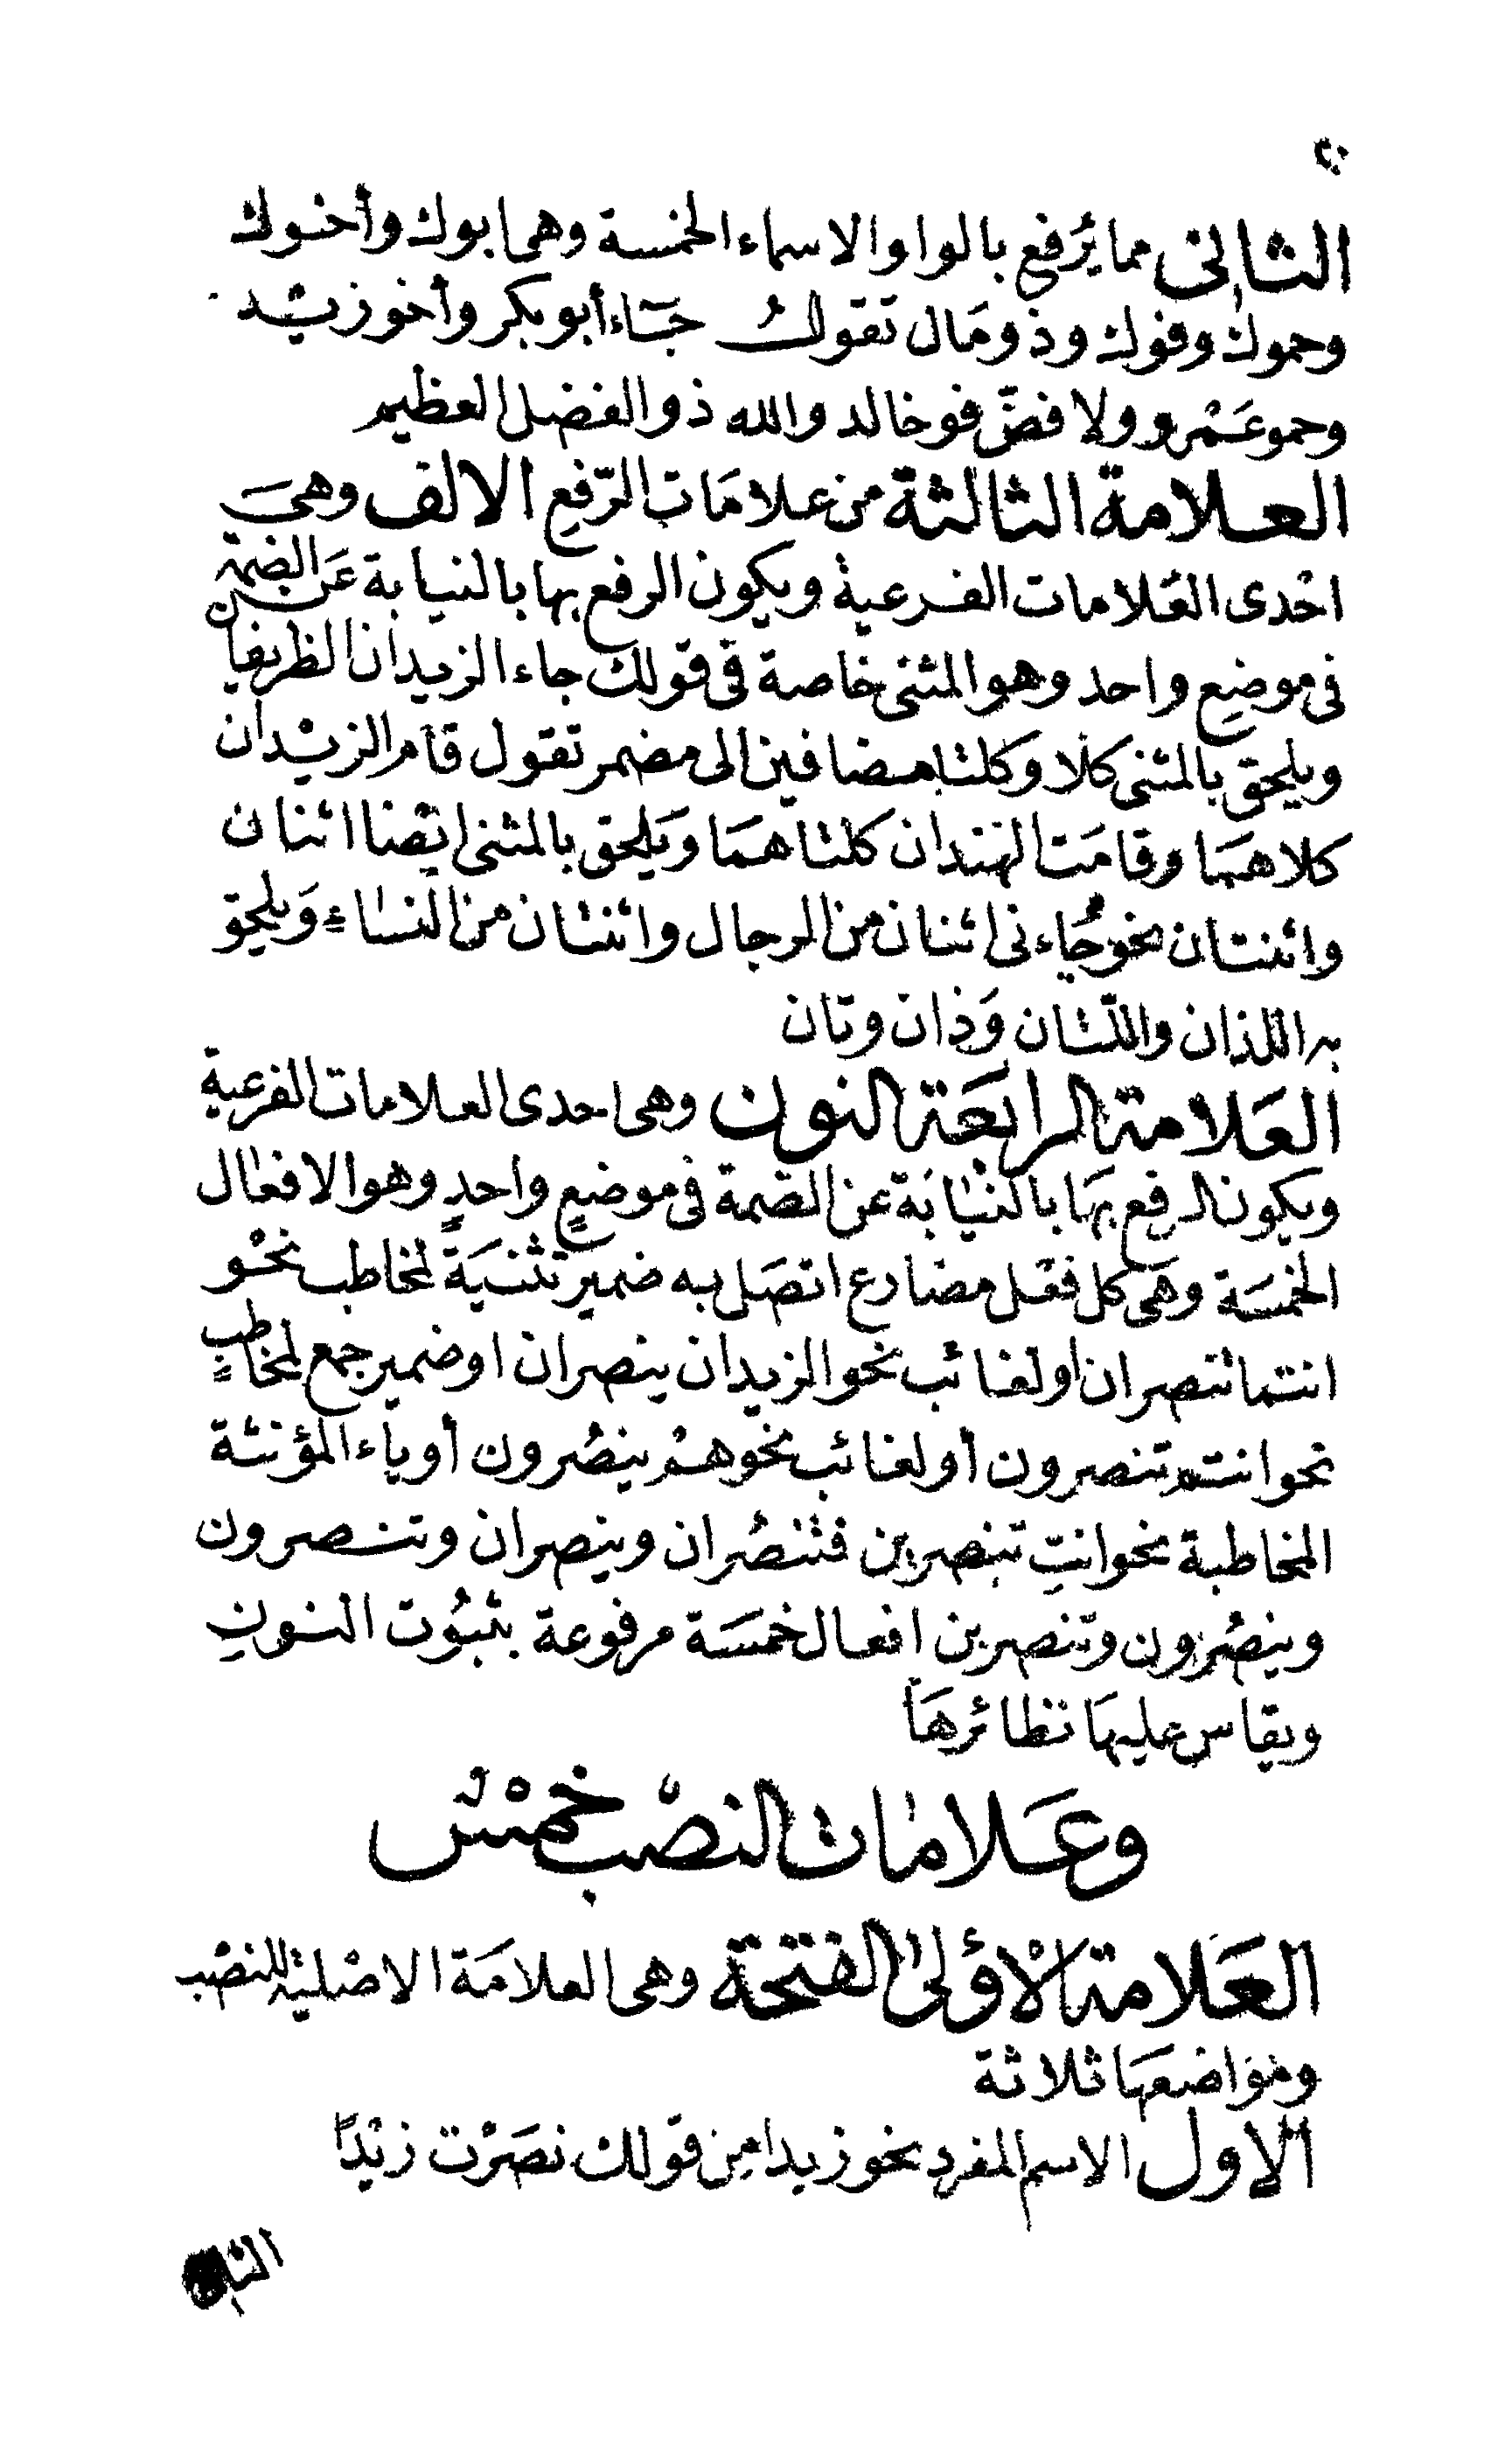 ٢٠
الثانى مما يُرفع بالواو الاسماء الخمسة وهى ابوك وأخوك
وحموك وفوك وذو مَال تقولُ جَاء أبو بكر وأخو زيْد
وحمو عَمْرو ولا فضّ فو خالد والله ذو الفضل العظيم
العلامة الثالثة من علامَات الرّفع الالف وهىَ
احْدى العَلامات الفرعية ويكون الرفع بها بالنيابة عَن الضمة
فى موضع واحد وهو المثنى خاصة فى قولك جاء الزيدان الظريفان
ويلحق بالمثنى كلا وكلتا مضافين الى مضمر تقول قام الزيْدان
كلاهمَا وقامَت الهندان كلتاهمَا ويَلحق بالمثنى ايْضا اثنان
واثنتان نحو جَاءنى اثنان من الرجال واثنتان من النسَاءِ وَيلحق
به اللذان واللّتان وَذان وتان
العَلامة الرابعَة النون وهى احدى العلامات الفرعية
ويكون الرفع بهَا بالنيَابَة عن الضمة فى موضعٍ واحدٍ وهو الافعَال
الخمسَة وهى كل فعْل مضارع اتصَل به ضمير تثنيَة لمخاطب نحْو
انتما تنصران او لغائب نحو الزيدان ينصران او ضمير جمع لمخاطبٍ
نحو انتم تنصرون أو لغائب نحو همْ ينصُرون أو ياء المؤنثة
المخاطبة نحو انتِ تنصرين فتنصُران وينصران وتنصرون
وينصُرون وتنصرين افعال خمسَة مرفوعة بثبُوت النونِ
ويقاس عليهَا نظائرهَا
وعَلامات النصْب خمْسٌ
العَلامة الْاولىٰ الفتحة وهى العلامَة الاصْلية للنصْب
ومَوَاضعهَا ثلاثة
الاول الاسم المفرد نحو زيدا مِن قولك نصَرْت زيْدًا